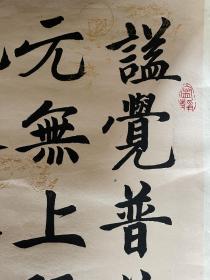 謚覺普
元無上